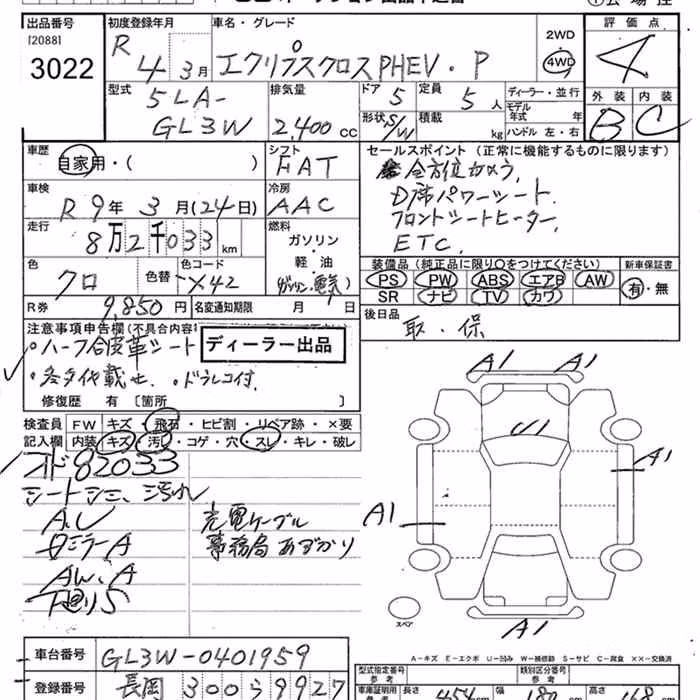 出品番号 初度登録年月 車名・グレード 2WD 評価点
[2088] R 4年 3月 エクリプスクロスPHEV・P 4WD 4
3022
型式 排気量 ドア 定員 ディーラー・並行 外装 内装
5LA- 5 5人 モデル年式 年式 B C
GL3W 2,400cc 形状 S/W 積載 kg ハンドル 左・右
車歴 シフト セールスポイント(正常に機能するものに限ります)
自家用・( ) FAT 全方位カメラ,
車検 冷房 D席パワーシート.
R 9年 3月(24日) AAC フロントシートヒーター,
走行 燃料 ETC.
8万2千033km ガソリン・軽・油
色 色替 色コード (ガソリン・電気)
クロ X42
装備品(純正品に限り○をつけてください) 新車保証書
PS PW ABS エアB AW 有・無
SR ナビ TV カワ
R券 9,850円 名変通知期限 月 日 後日品
取・保
注意事項申告欄(不具合内容
・ハーフ合皮革シート ディーラー出品
・ドラレコ付.
修復歴 有 [箇所 ]
検査員 FW キズ・飛石・ヒビ割・リペア跡・×要
記入欄 内装 キズ・汚レ・コゲ・穴・スレ・キレ・破レ
82033
シートシミ、汚れ
A.U 充電ケーブル
ミラーA 事務局あずかり
AW、A
下廻りS
A1 A1
U1
A1
A1
A1
スペア
A-キズ E-エクボ U-凹み W-補修跡 S-サビ C-腐食 ××-交換済
車台番号 GL3W-0401959
登録番号 長岡 300 9927
型式指定番号 参考 類別区分番号 参考
長さ 454 幅 高さ 168